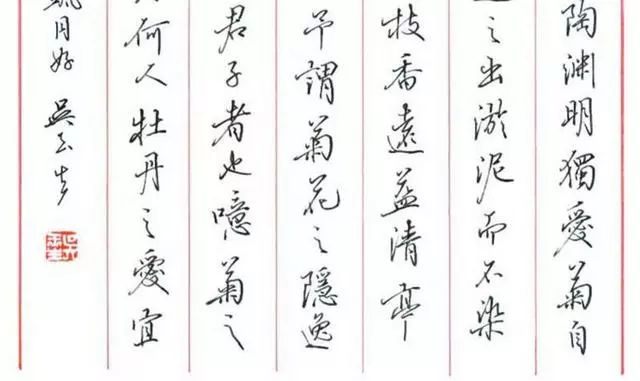 陶渊明獨愛菊自
之出淤泥而不染
枝香遠益清亭
予謂菊花之隱逸
君子者也噫菊之
何人牡丹之愛宜
同好 吴玉生